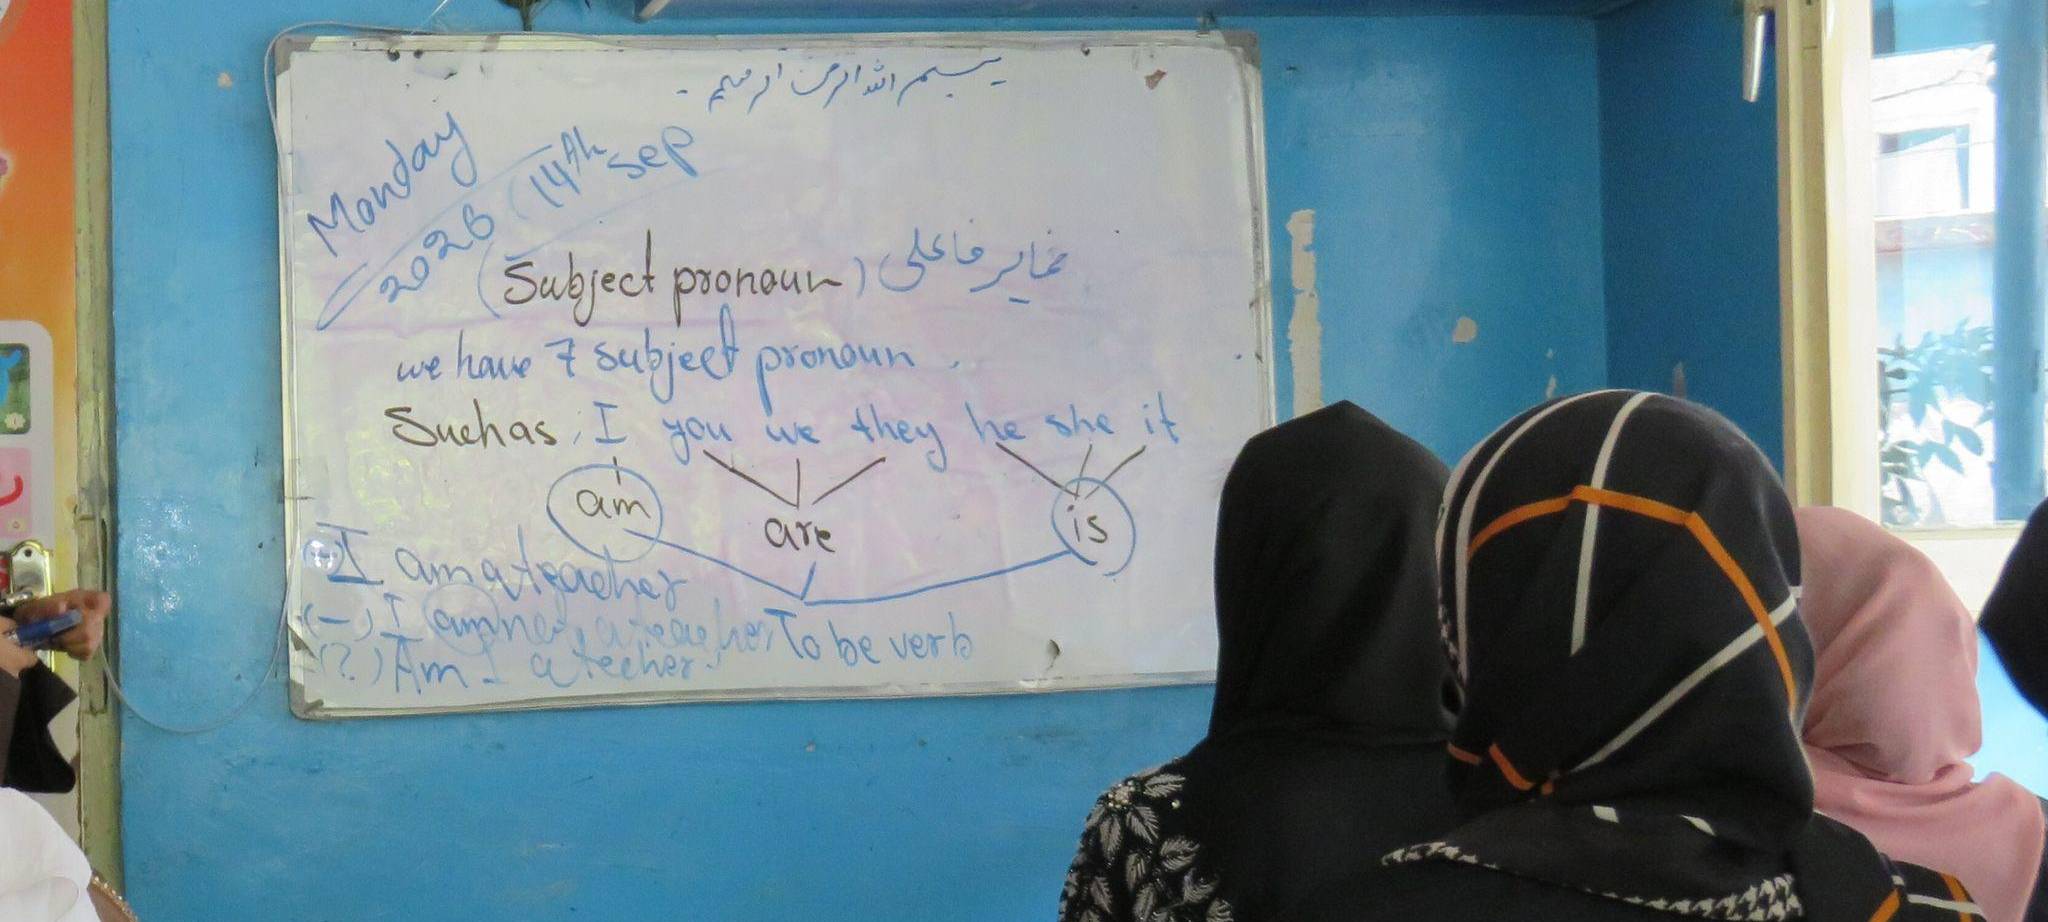 بسم الله الرحمن الرحیم
Monday
2026 (14th sep
(Subject pronoun) ضمایر فاعلی
we have 7 subject pronoun .
Such as : I you we they he she it
am are is
I am a teacher
(-) I am not a teacher
(?) Am I a techer
To be verb